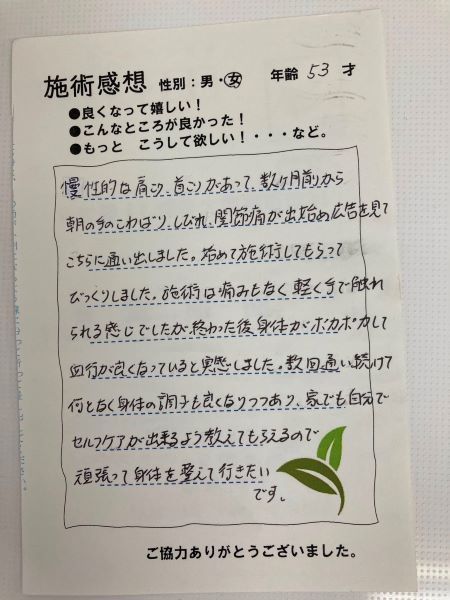 施術感想 性別：男・女 年齢 53 才
●良くなって嬉しい！
●こんなところが良かった！
●もっと こうして欲しい！・・・など。
慢性的な肩こり、首こりがあって、数ヶ月前から
朝の手のこわばり、しびれ、関節痛が出始め広告を見て
こちらに通い出しました。始めて施術してもらって
びっくりしました。施術は痛みもなく軽く手で触れ
られる感じでしたが、終わった後身体がポカポカして
血行が良くなっていると実感しました。数回通い続けて
何となく身体の調子も良くなりつつあり、家でも自分で
セルフケアが出来るよう教えてもらえるので
頑張って身体を整えて行きたい
です。
ご協力ありがとうございました。